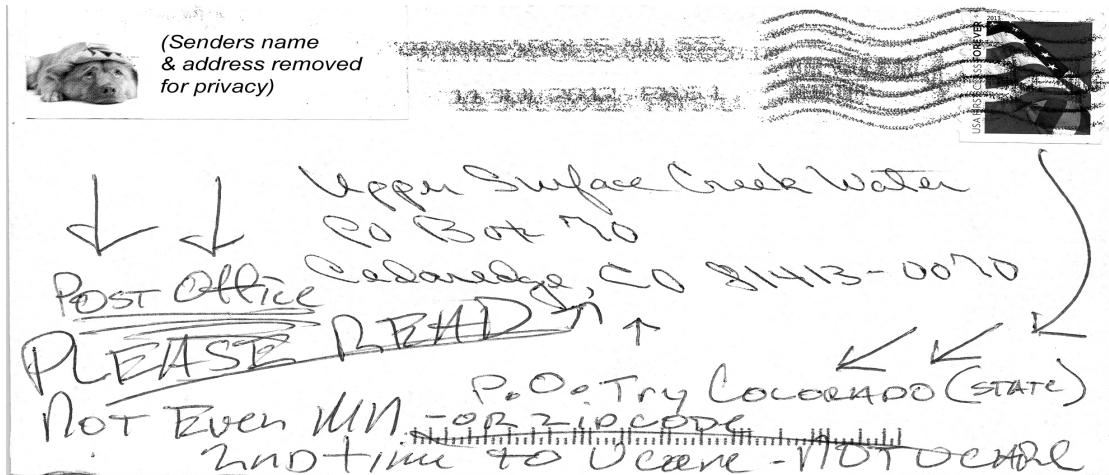 (Senders name
& address removed
for privacy)
MINNEAPOLIS MN 553
2011
USA FIRST-CLASS FOREVER
Upper Surface Creek Water
PO Box 70
Cedaredge, CO 81413-0070
POST Office
PLEASE READ
P.O. Try COLORADO (STATE)
NOT EVEN MN - OR ZIPCODE
2ND time to